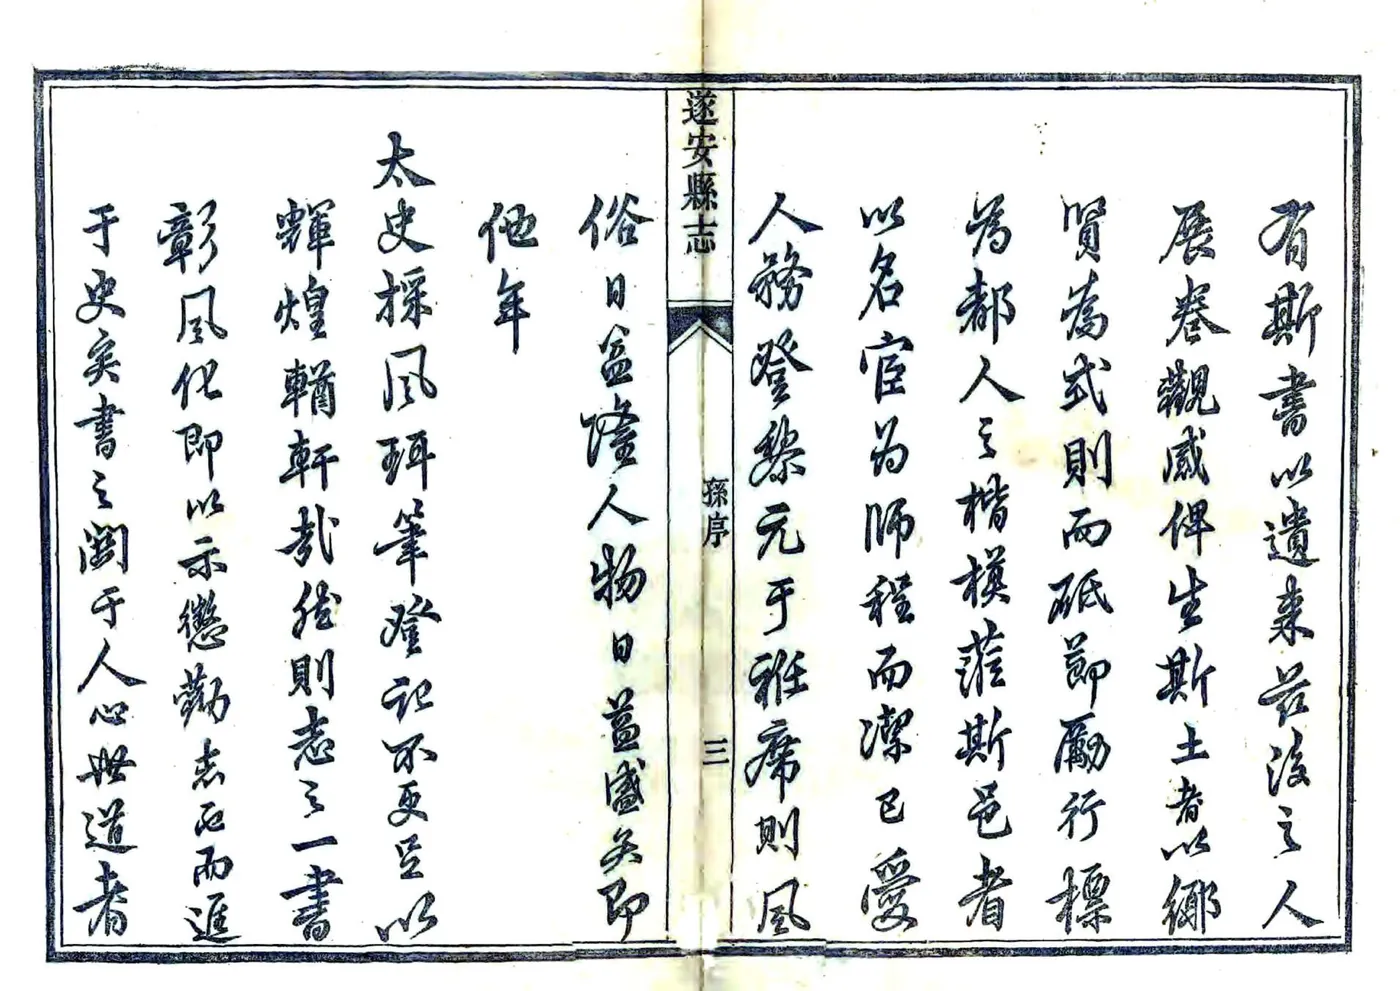 有斯書以遺來茲後之人
展卷觀感俾生斯土者以鄉
賢為式則而砥節勵行標
為都人之楷模蒞斯邑者
以名宦為師程而潔己愛
人務登黎元于袵席則風
遂安縣志
孫序
三
俗日益隆人物日益盛矣即
他年
太史採風珥筆登記不更足以
輝煌輶軒哉然則志之一書
彰風化即以示懲勸志也而進
于史矣書之關于人心世道者